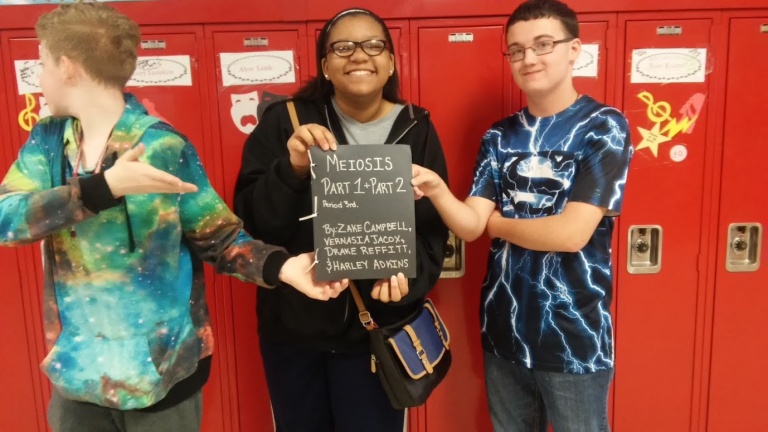 MEIOSIS
PART 1 + PART 2
Period 3rd.
By: ZAKE CAMPBELL,
VERNASIA JACOX,
DRAKE REFFITT,
& HARLEY ADKINS